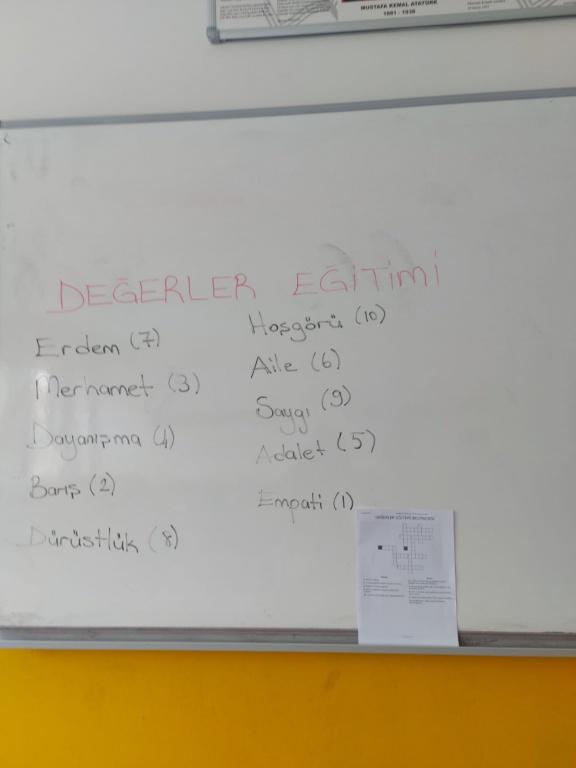 MUSTAFA KEMAL ATATÜRK
1881 - 1938
DEĞERLER EĞİTİMİ
Erdem (7)
Merhamet (3)
Dayanışma (4)
Barış (2)
Dürüstlük (8)
Hoşgörü (10)
Aile (6)
Saygı (9)
Adalet (5)
Empati (1)
DEĞERLER EĞİTİMİ BULMACASI